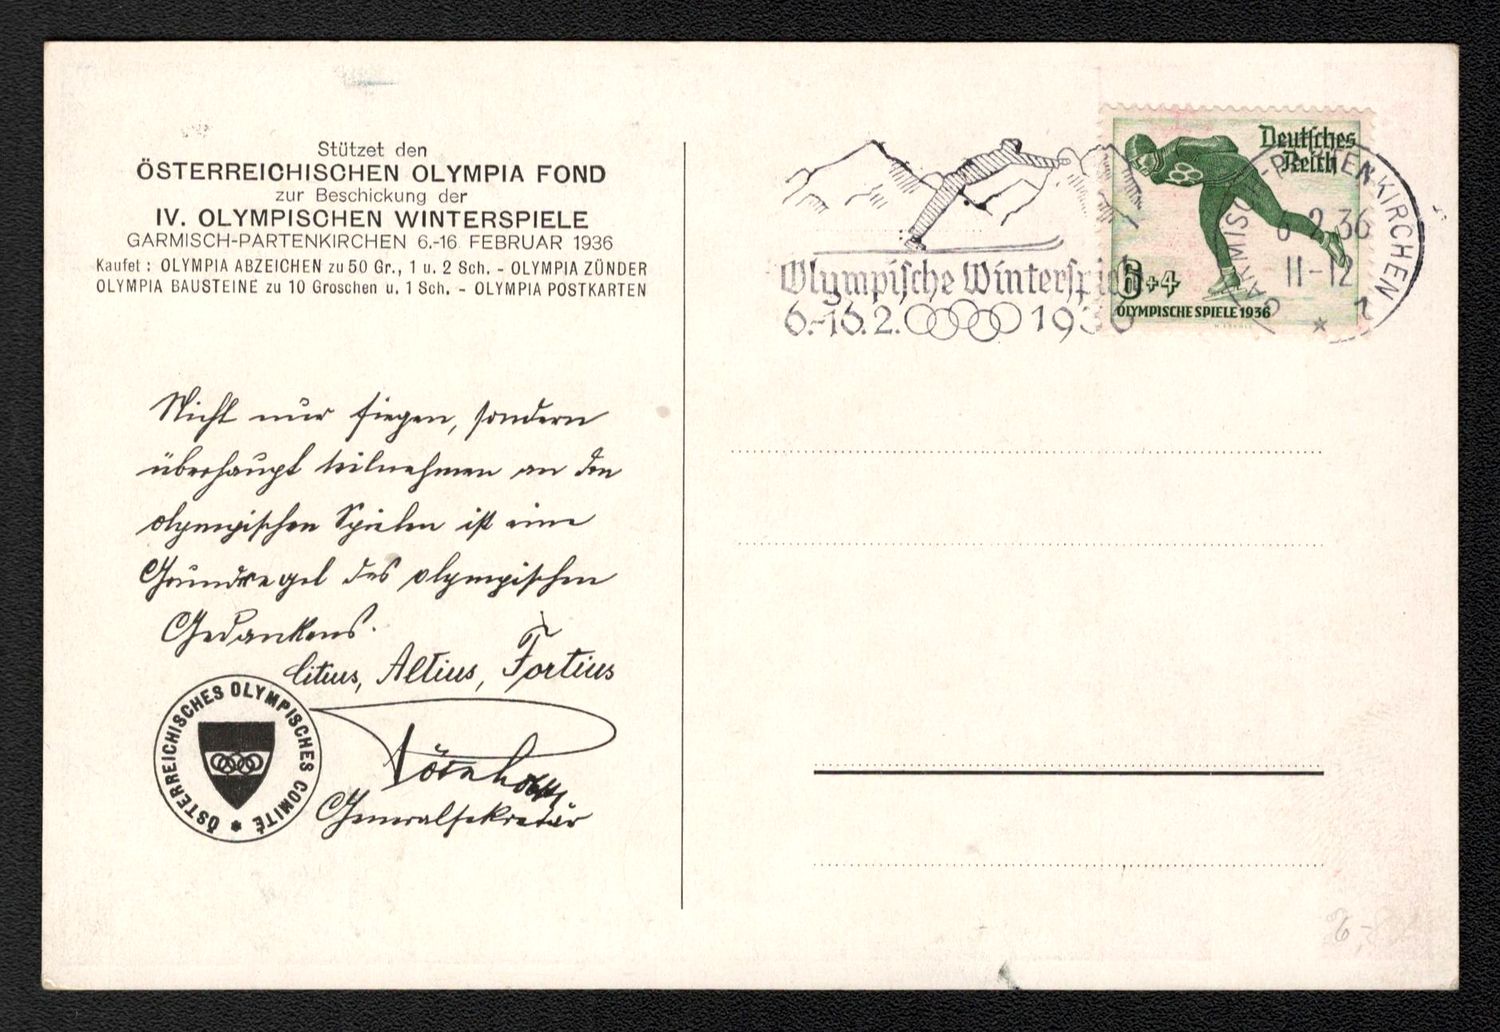 Stützet den
ÖSTERREICHISCHEN OLYMPIA FOND
zur Beschickung der
IV. OLYMPISCHEN WINTERSPIELE
GARMISCH-PARTENKIRCHEN 6.-16. FEBRUAR 1936
Kaufet : OLYMPIA ABZEICHEN zu 50 Gr., 1 u. 2 Sch. - OLYMPIA ZÜNDER
OLYMPIA BAUSTEINE zu 10 Groschen u. 1 Sch. - OLYMPIA POSTKARTEN
Nicht nur siegen, sondern
überhaupt teilnehmen an den
olympischen Spielen ist eine
Grundregel des olympischen
Gedankens.
Citius, Altius, Fortius
Generalsekretär
ÖSTERREICHISCHES OLYMPISCHES COMITÉ *
Olympische Winterspiele
6.-16.2. 1936
Deutsches
Reich
6+4
OLYMPISCHE SPIELE 1936
GARMISCH-PARTENKIRCHEN 2
6.2.36
11-12
*